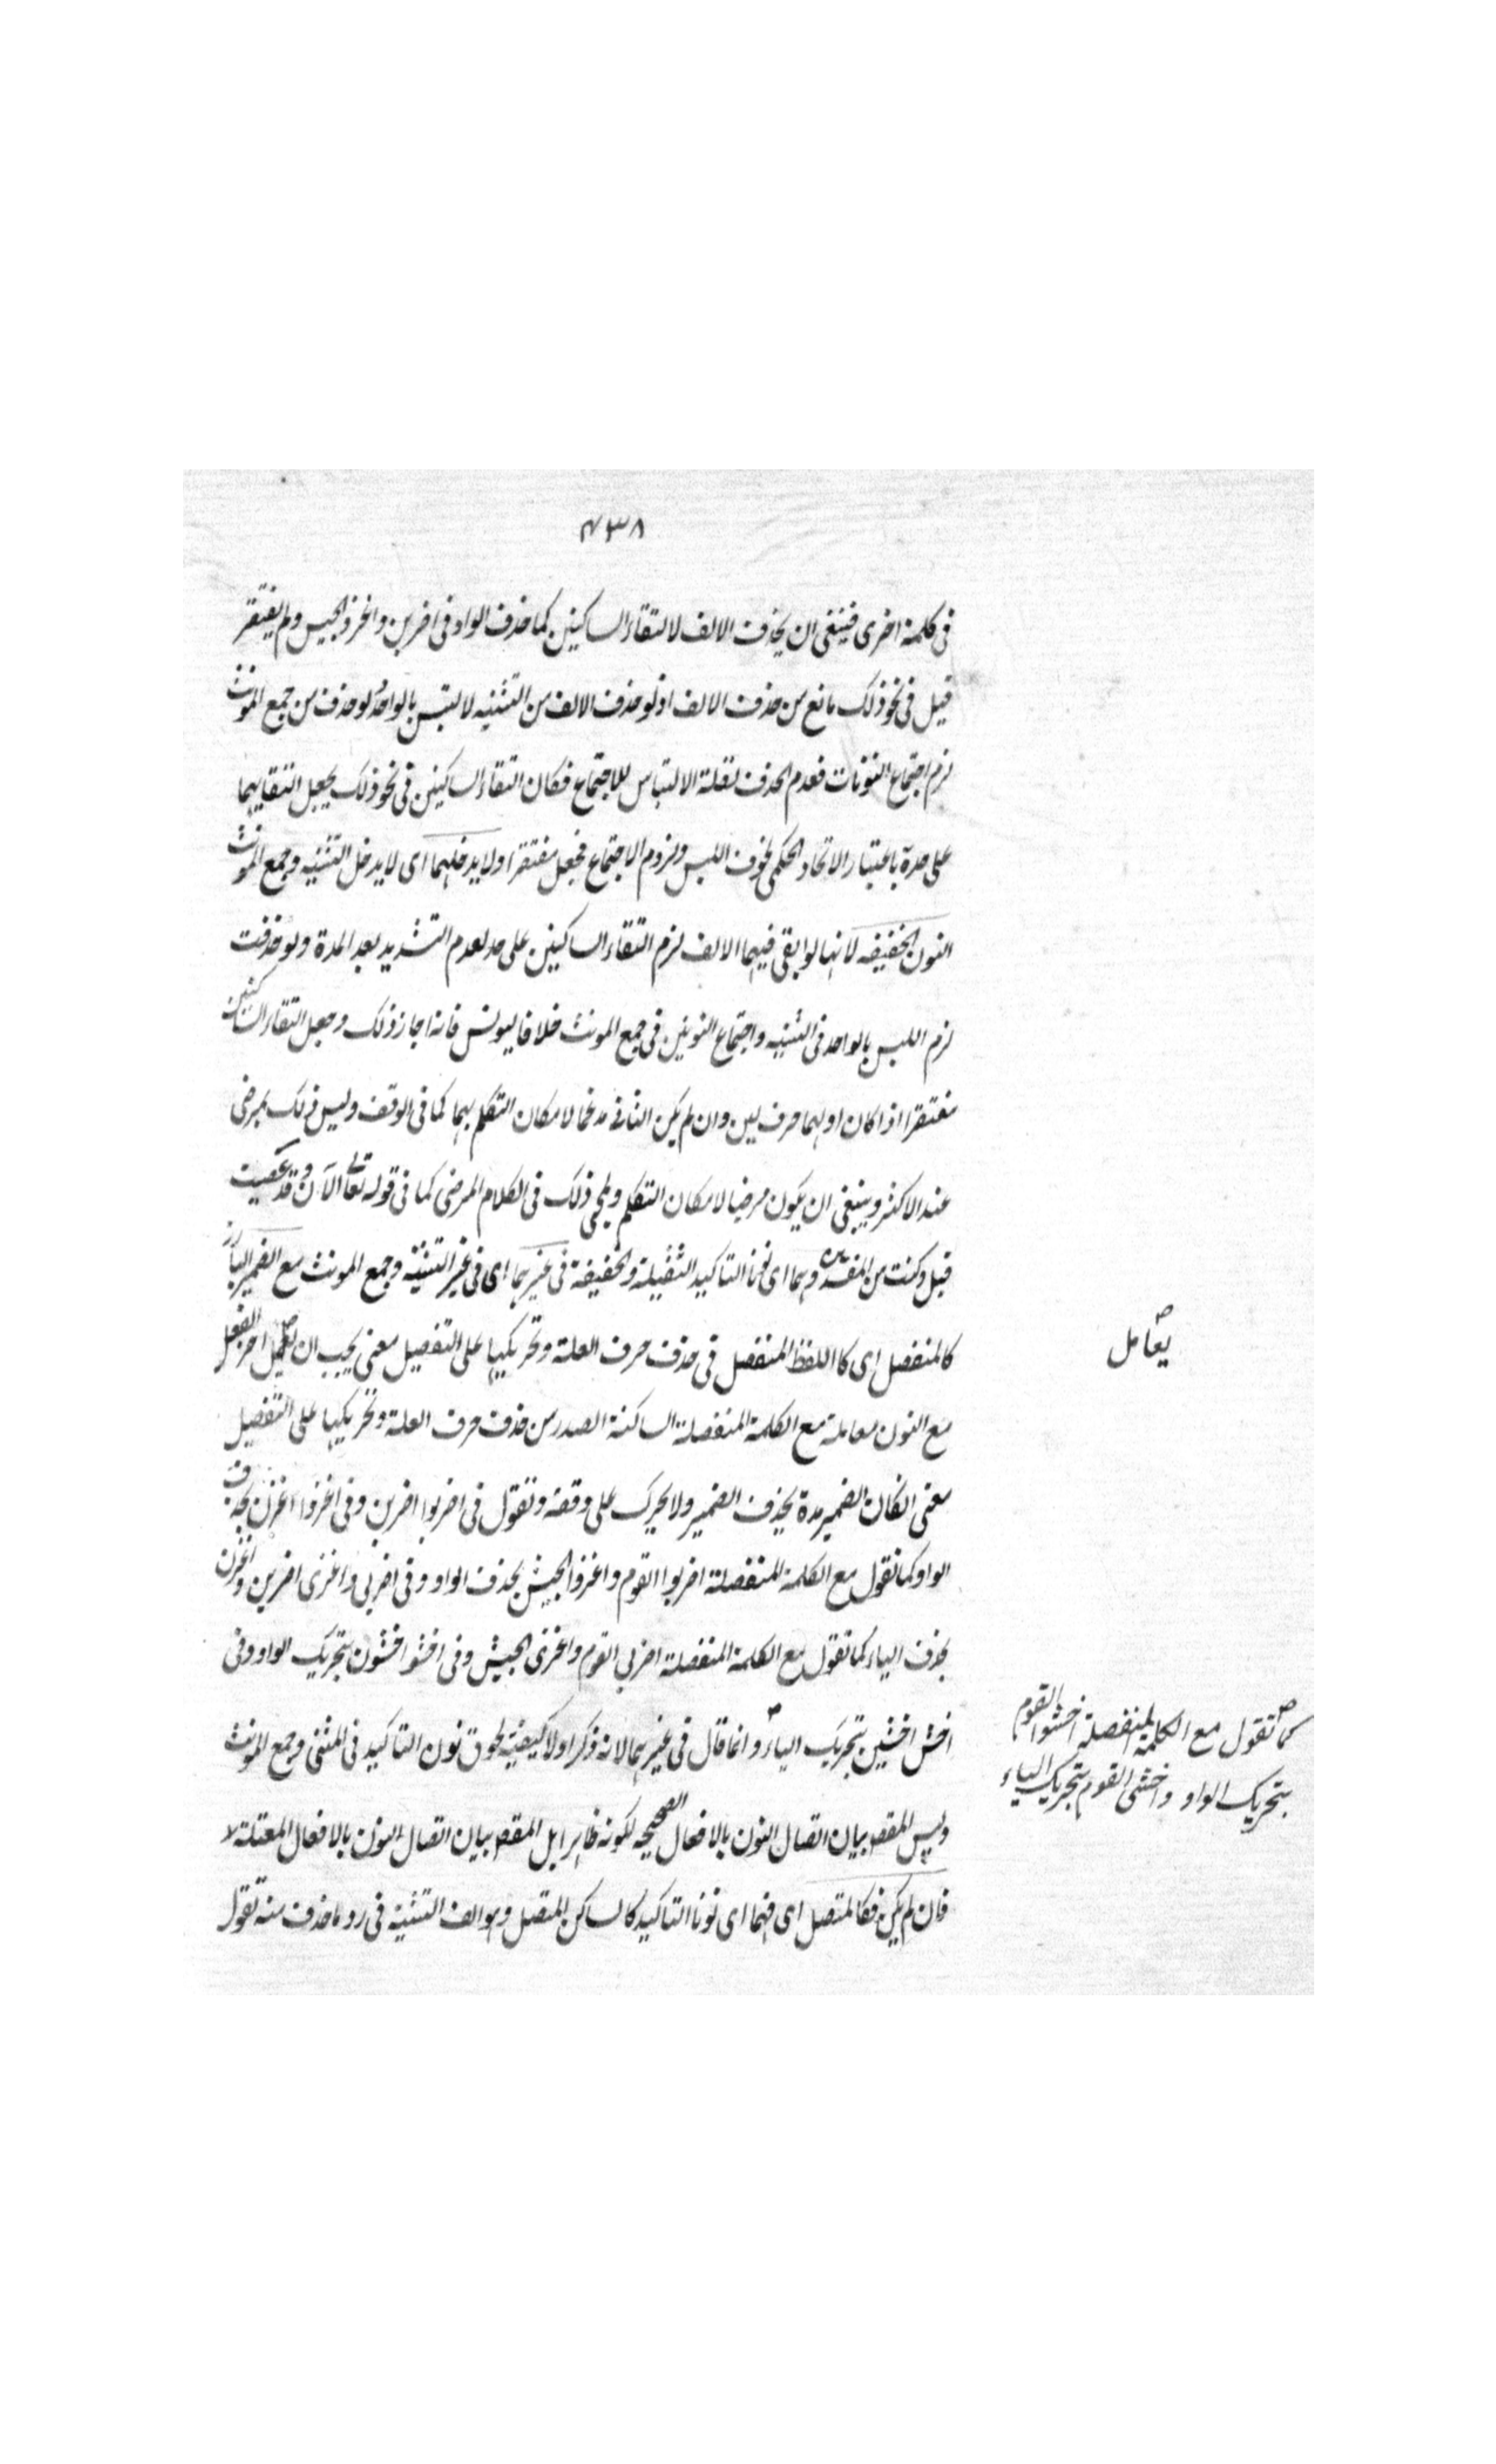 ٤٣٨
فى كلمة اخرى فينبغى ان يحذف الالف لالتقاء الساكنين كما حذف الواو فى اضربن واغزو الجيس ولم يفتقر
قيل فى نحو ذلك مانع من حذف الالف اذ لو حذف الالف من التثنيه لالتبس بالواحد ولو حذف من جمع المونث
لزم اجتماع النونات فعدم الحذف لقلة الالتباس للاجتماع فكان التقاء الساكنين فى نحو ذلك يجعل التقايهما
على حدة باعتبار الاتحاد الحكمى لخوف اللبس ولزوم الاجتماع فجعل مفتقرا ولا يدخلهما اى لا يدخل التثنيه وجمع المونث
النون الخفيفه لانها لو ابقى فيهما الالف لزم التقاء الساكنين على حد لعدم التشديد بعد المدة ولو حذفت
لزم اللبس بالواحد فى التثنيه واجتماع النونين فى جمع المونث خلافا ليونس فانه اجاز ذلك وجعل التقاء الساكنين
مفتقرا اذا كان اولهما حرف لين وان لم يكن الثانى مدغما لامكان التكلم بهما كما فى الوقف وليس ذلك بمرضى
عند الاكثر وينبغى ان يكون مرضيا لامكان التكلم ولمجى ذلك فى الكلام المرضى كما فى قوله تعالى الآن وقد عصيت
قبل وكنت من المفسدين وهما اى نونا التاكيد الثقيلة والخفيفة فى غيرهما اى فى غير التثنية وجمع المونث مع الضمير البارز
كالمنفصل اى كاللفظ المنفصل فى حذف حرف العلة وتحريكها على التفصيل معنى يجب ان يعمل اخر الفعل
يعامل
مع النون معاملة مع الكلمة المنفصلة الساكنة الصدر من حذف حرف العلة وتحريكها على التفصيل
معنى ان كان الضمير مدة يحذف الضمير ولا يحرك على وقفه وتقول فى اضربوا اضربن وفى اغزوا اغزن بحذف
الواو كما تقول مع الكلمة المنفصلة اضربوا القوم واغزوا الجيش بحذف الواو وفى اضربى واغزى اضربن واغزن
بحذف الياء كما تقول مع الكلمة المنفصلة اضربى القوم واغزى الجيش وفى اخشوا اخشون بتحريك الواو وفى
اخش اخشين بتحريك الياء وانما قال فى غيرهما لانه ذكر اولا كيفية لحوق نون التاكيد فى المثنى وجمع المونث
كما تقول مع الكلمة المنفصلة اخشوا القوم
بتحريك الواو واخشى القوم بتحريك الياء
وليس المقصد بيان اتصال النون بالافعال الصحيحه لكونه ظاهرا بل المقصد بيان اتصال النون بالافعال المعتلة
فان لم يكن فكالمتصل اى فهما اى نونا التاكيد كالساكن المتصل وهو الف التثنية فى رد ما حذف منه تقول